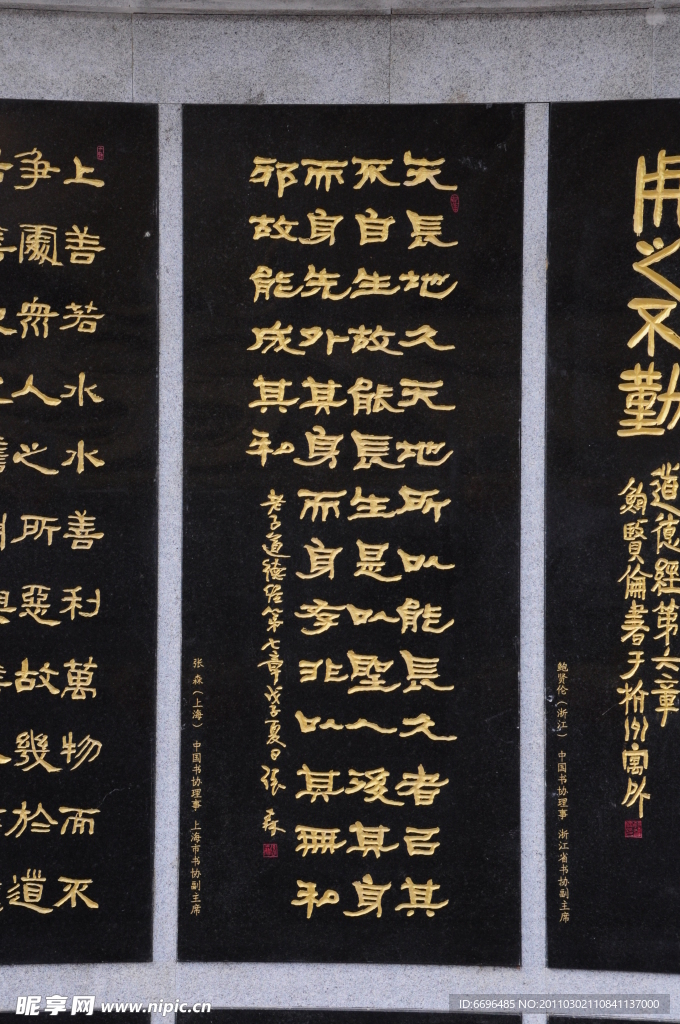 用之不勤
道德經第六章
鮑賢倫書于杭州寓所
鲍贤伦（浙江） 中国书协理事 浙江省书协副主席
天長地久天地所以能長久者以其
不自生故能長生是以聖人後其身
而身先外其身而身存非以其無私
邪故能成其私
老子道德經第七章戊子夏日張森
张森（上海） 中国书协理事 上海市书协副主席
上善若水水善利萬物而不
争處眾人之所惡故幾於道
昵享网 www.nipic.cn
ID:6696485 NO:20110302110841137000